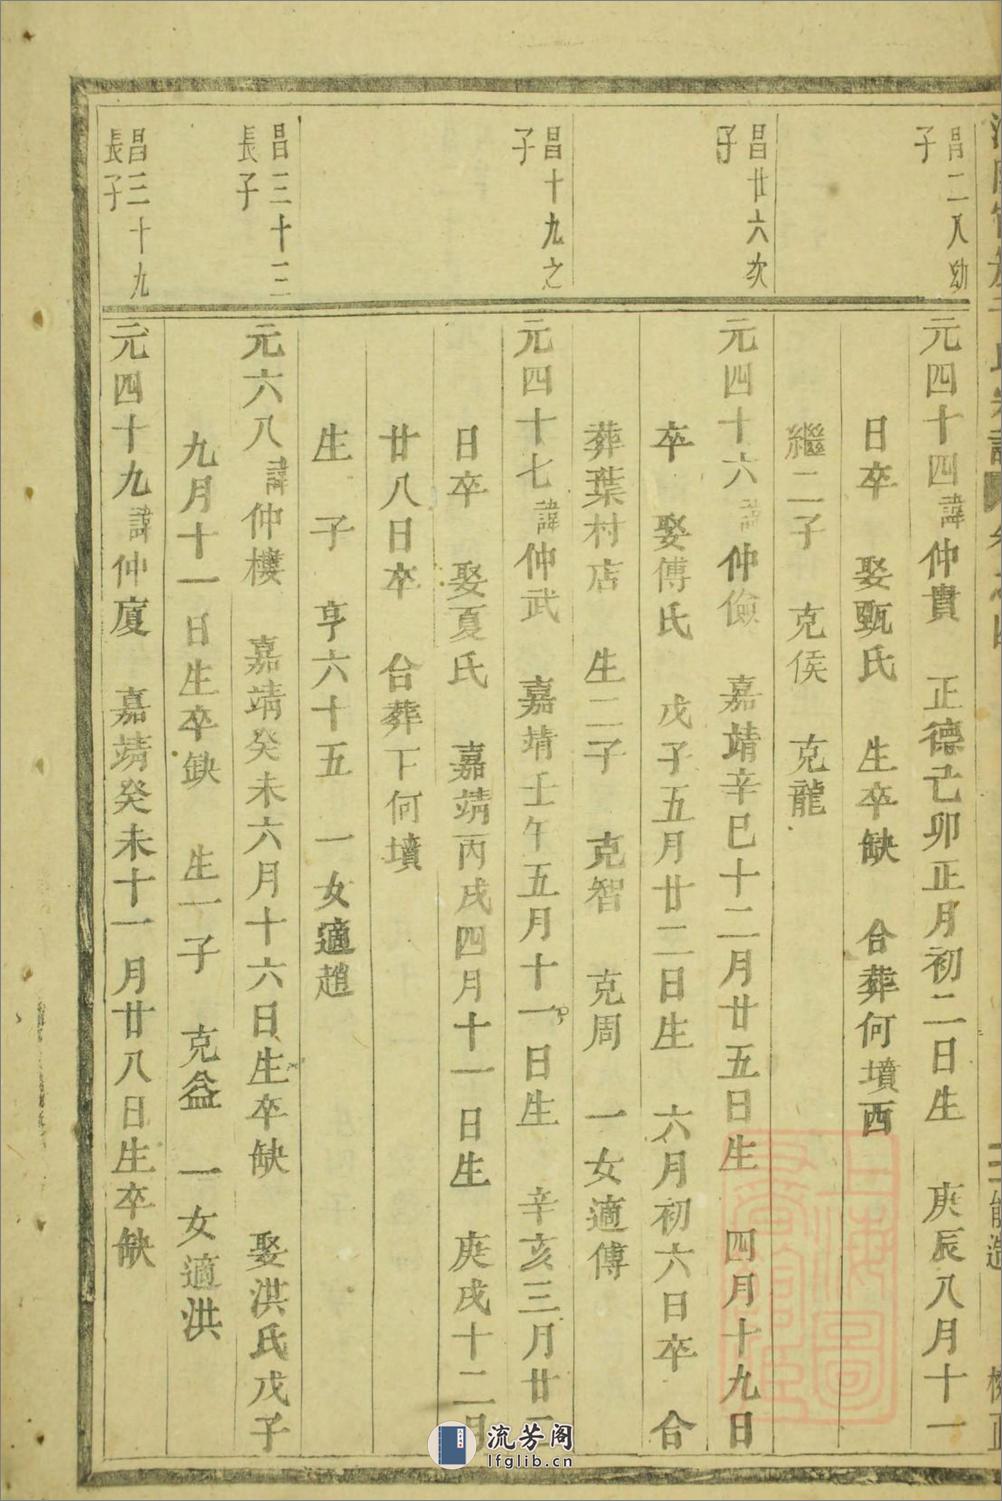 昌二八幼
子
元四十四諱仲貴 正德己卯正月初二日生 庚辰八月十一
日卒 娶甄氏 生卒缺 合葬何墳西
繼二子 克侯 克龍
昌廿六次
子
元四十六諱仲儉 嘉靖辛巳十二月廿五日生 四月十九日
卒 娶傅氏 戊子五月廿二日生 六月初六日卒 合
葬葉村店 生二子 克智 克周 一女適傅
昌十九之
子
元四十七諱仲武 嘉靖壬午五月十一日生 辛亥三月廿
日卒 娶夏氏 嘉靖丙戌四月十一日生 庚戌十二月
廿八日卒 合葬下何墳
生 子 亨六十五 一女適趙
昌三十三
長子
元六八諱仲樓 嘉靖癸未六月十六日生卒缺 娶洪氏戊子
九月十一日生卒缺 生一子 克益 一女適洪
昌三十九
長子
元四十九諱仲廈 嘉靖癸未十一月廿八日生卒缺
流芳阁
lfglib.cn